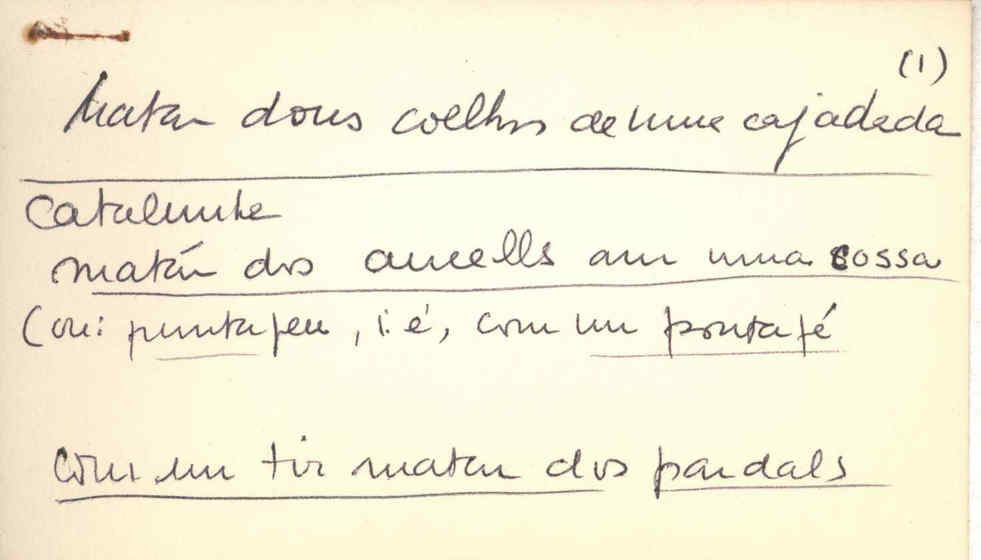 (1)
Matar dous coelhos de uma cajadada
catalunha
matár dos aucells am una cossa
(ou: puntapeu, i. é, com um pontapé
com un tir matar dos pardals